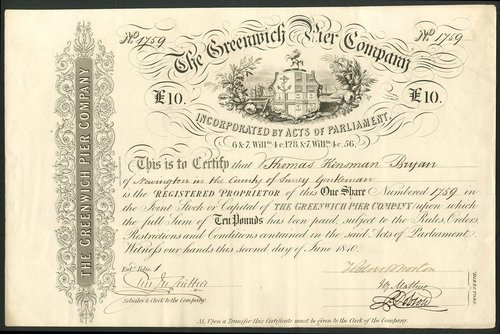 No. 1759
No. 1759
The Greenwich Pier Company
£10.
£10.
INCORPORATED BY ACTS OF PARLIAMENT,
6 & 7 Willm. 4 c. 128, & 7. Willm. 4 c. 56.
This is to Certify that Thomas Hinsman Bryan
of Newington in the County of Surry Gentleman
is the REGISTERED PROPRIETOR of this One Share Numbered 1759 in
the Joint Stock or Capital of THE GREENWICH PIER COMPANY upon which
the full Sum of Ten Pounds has been paid, subject to the Rules, Orders,
Restrictions and Conditions contained in the said Acts of Parliament.
Witness our hands this second day of June
Entd. Folio 1
Solicitor & Clerk to the Company.
DIRECTORS.
N.B. Upon a Transfer this Certificate must be given to the Clerk of the Company.
THE GREENWICH PIER COMPANY